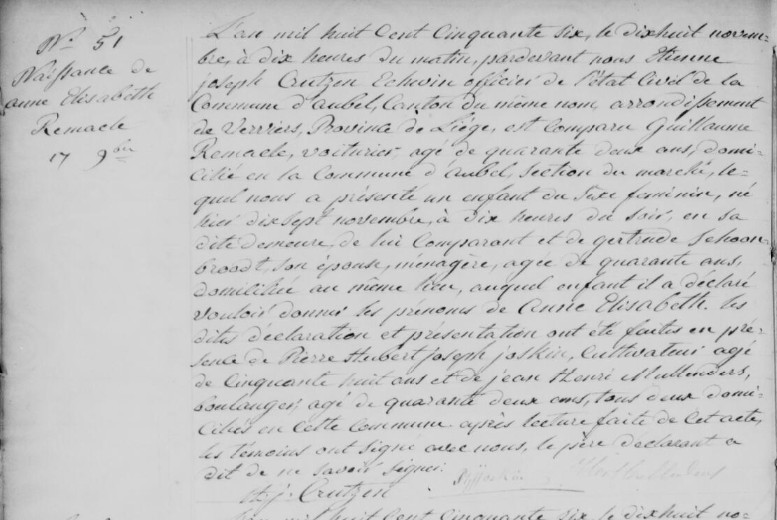 N° 51
Naissance de
anne Elisabeth
Remacle
17 9bre
L'an mil huit Cent Cinquante six, le dixhuit novem-
bre, à dix heures du matin, pardevant nous Etienne
joseph Crutzen Echevin officier de l'état Civil de la
Commune d'aubel, Canton du même nom, arrondissement
de Verviers, Province de Liége, est Comparu Guillaume
Remacle, voiturier, agé de quarante deux ans, domi-
cilié en la Commune d'aubel, section du marché, le-
quel nous a présenté un enfant du sexe feminin, né
hier dixsept novembre, à dix heures du soir, en sa
dite demeure, de lui Comparant et de gertrude Schoon-
broodt, son épouse, ménagère, agée de quarante ans,
domiliciée au même lieu, auquel enfant il a déclaré
vouloir donner les prénoms de Anne Elisabeth. les
dites déclaration et présentation ont été faites en pré-
sence de Pierre Hubert joseph joskin, Cultivateur agé
de Cinquante huit ans et de jean Henri Mullenders,
boulanger, agé de quarante deux ans, tous deux domi-
ciliés en Cette Commune après lecture faite de Cet acte,
les témoins ont signé avec nous, le père déclarant a
dit de ne savoir signer.
Crutzen
L'an mil huit Cent Cinquante six, le dixhuit no-